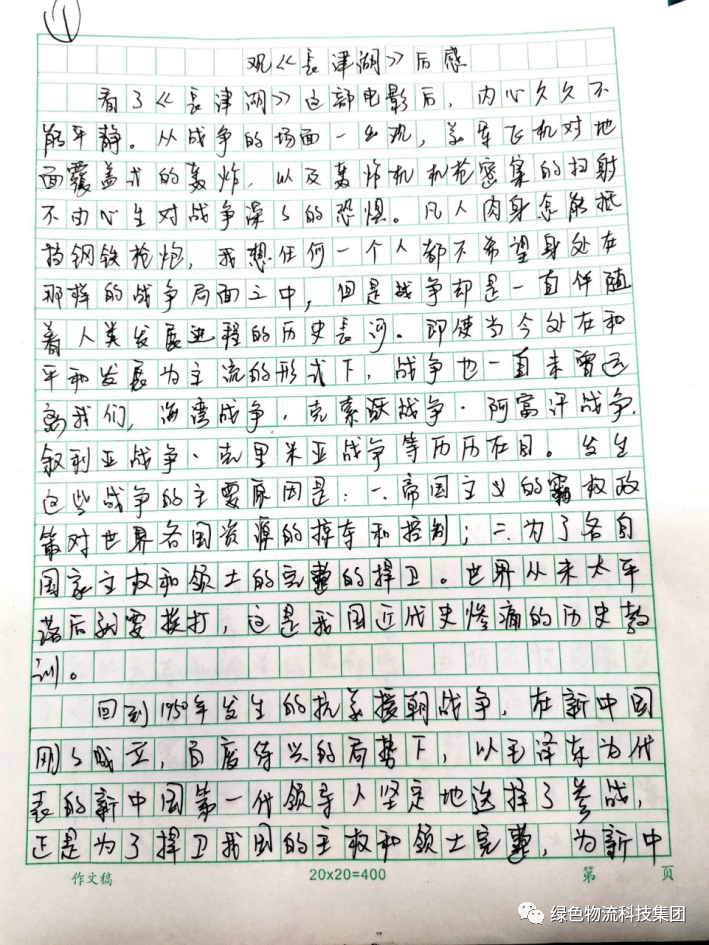 ①
观《長津湖》后感
看了《長津湖》这部电影后，内心久久不
能平静。从战争的场面一出现，美军飞机对地
面覆盖式的轰炸，以及轰炸机机枪密集的扫射
不由心生对战争深深的恐惧。凡人肉身怎能抵
挡钢铁枪炮，我想任何一个人都不希望身处在
那样的战争局面之中，但是战争却是一直伴随
着人类发展进程的历史長河。即使当今处在和
平和发展为主流的形式下，战争也一直未曾远
离我们，海湾战争、克索沃战争、阿富汗战争、
叙利亚战争、克里米亚战争等历历在目。发生
这些战争的主要原因是：一、帝国主义的霸权政
策对世界各国资源的掠夺和控制；二、为了各自
国家主权和领土的完整的捍卫。世界从未太平
落后就要挨打，这是我国近代史惨痛的历史教
训。
回到1950年发生的抗美援朝战争，在新中国
刚刚成立，百废待兴的局势下，以毛泽东为代
表的新中国第一代领导人坚定地选择了参战，
正是为了捍卫我国的主权和领土完整，为新中
作文稿 20×20=400 第 页
绿色物流科技集团